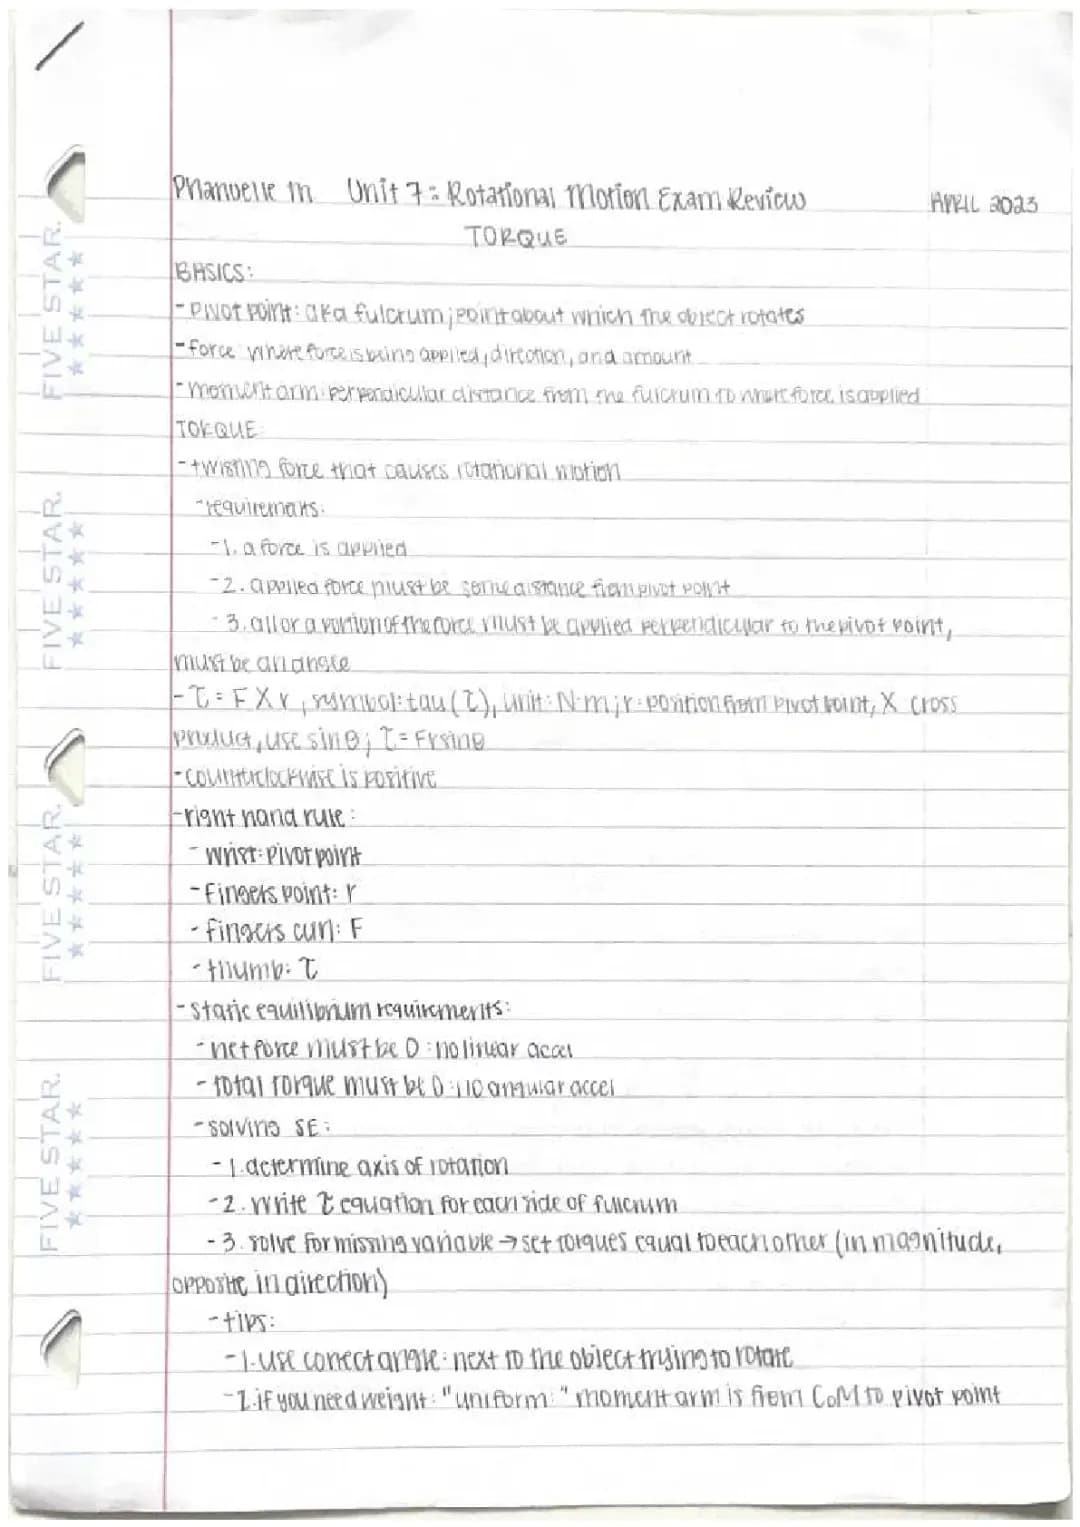 Phanuelle M Unit 7: Rotational Motion Exam Review APRIL 2023
TORQUE
BASICS:
- pivot point: aka fulcrum; point about which the object rotates
- force where force is being applied, direction, and amount
- moment arm: perpendicular distance from the fulcrum to where force is applied
TORQUE
- twisting force that causes rotational motion
- requirements:
- 1. a force is applied
- 2. applied force must be some distance from pivot point
- 3. all or a portion of the force must be applied perpendicular to the pivot point,
must be an angle
- τ = F X r, symbol: tau (τ), unit: N·m; r: position from pivot point, X cross
product, use sin θ; τ = Fr sin θ
- counterclockwise is positive
- right hand rule:
- wrist: pivot point
- Fingers point: r
- fingers curl: F
- thumb: τ
- static equilibrium requirements:
- net force must be 0: no linear accel
- total torque must be 0: no angular accel
- solving SE:
- 1. determine axis of rotation
- 2. write τ equation for each side of fulcrum
- 3. solve for missing variable → set torques equal to each other (in magnitude,
opposite in direction)
- tips:
- 1. use correct angle: next to the object trying to rotate
- 2. if you need weight: "uniform:" moment arm is from CoM to pivot point
FIVE STAR.
FIVE STAR.
FIVE STAR.
FIVE STAR.